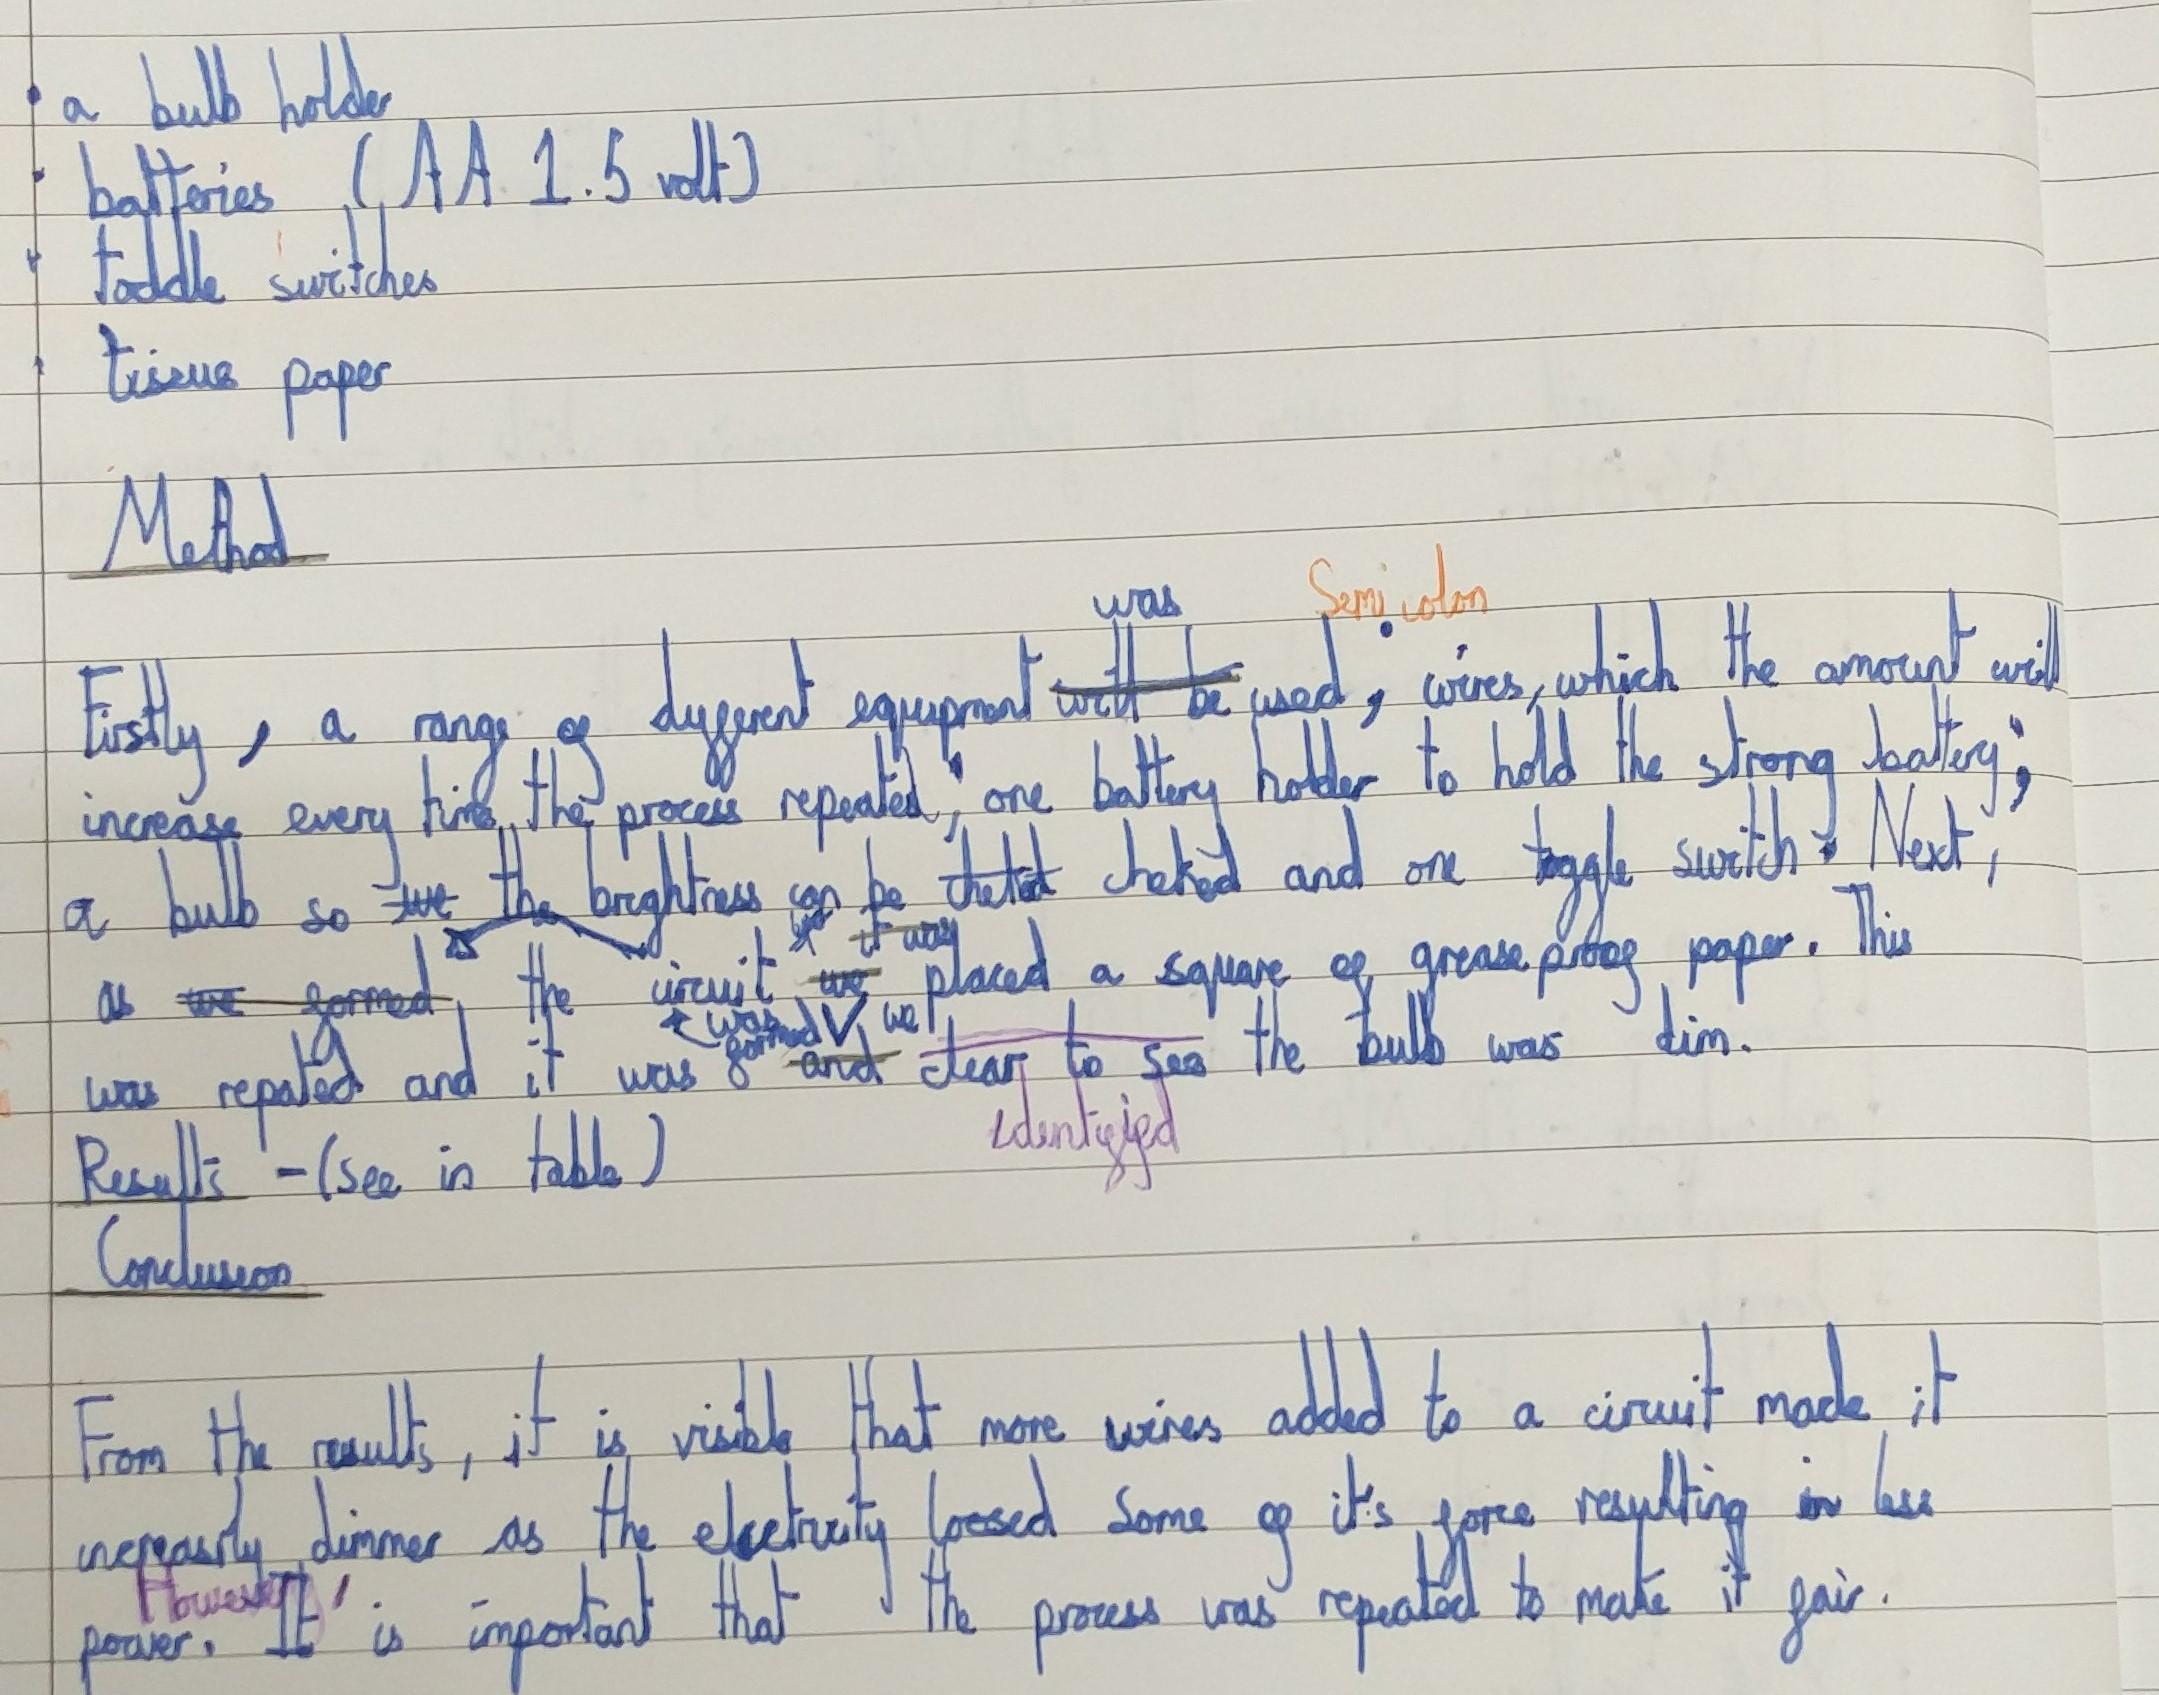 • a bulb holder
• batteries (AA 1.5 volt)
• toddle switches
• tissue paper
Method
was Semi colon
Firstly, a range of different equipment will be used; wires, which the amount will
increase every time the process repeated; one battery holder to hold the strong battery;
a bulb so we the brightness can be cheked and one toggle switch. Next,
it was
as we formed the circuit we placed a square of grease proof paper. This
was formed we
was repated and it was and clear to see the bulb was dim.
identified
Results - (see in table)
Conclusion
From the results, it is visible that more wires added to a circuit made it
increasrly dimmer as the electricity loosed some of it's force resulting in less
However,
power. It is important that the process was repeated to make it fair.